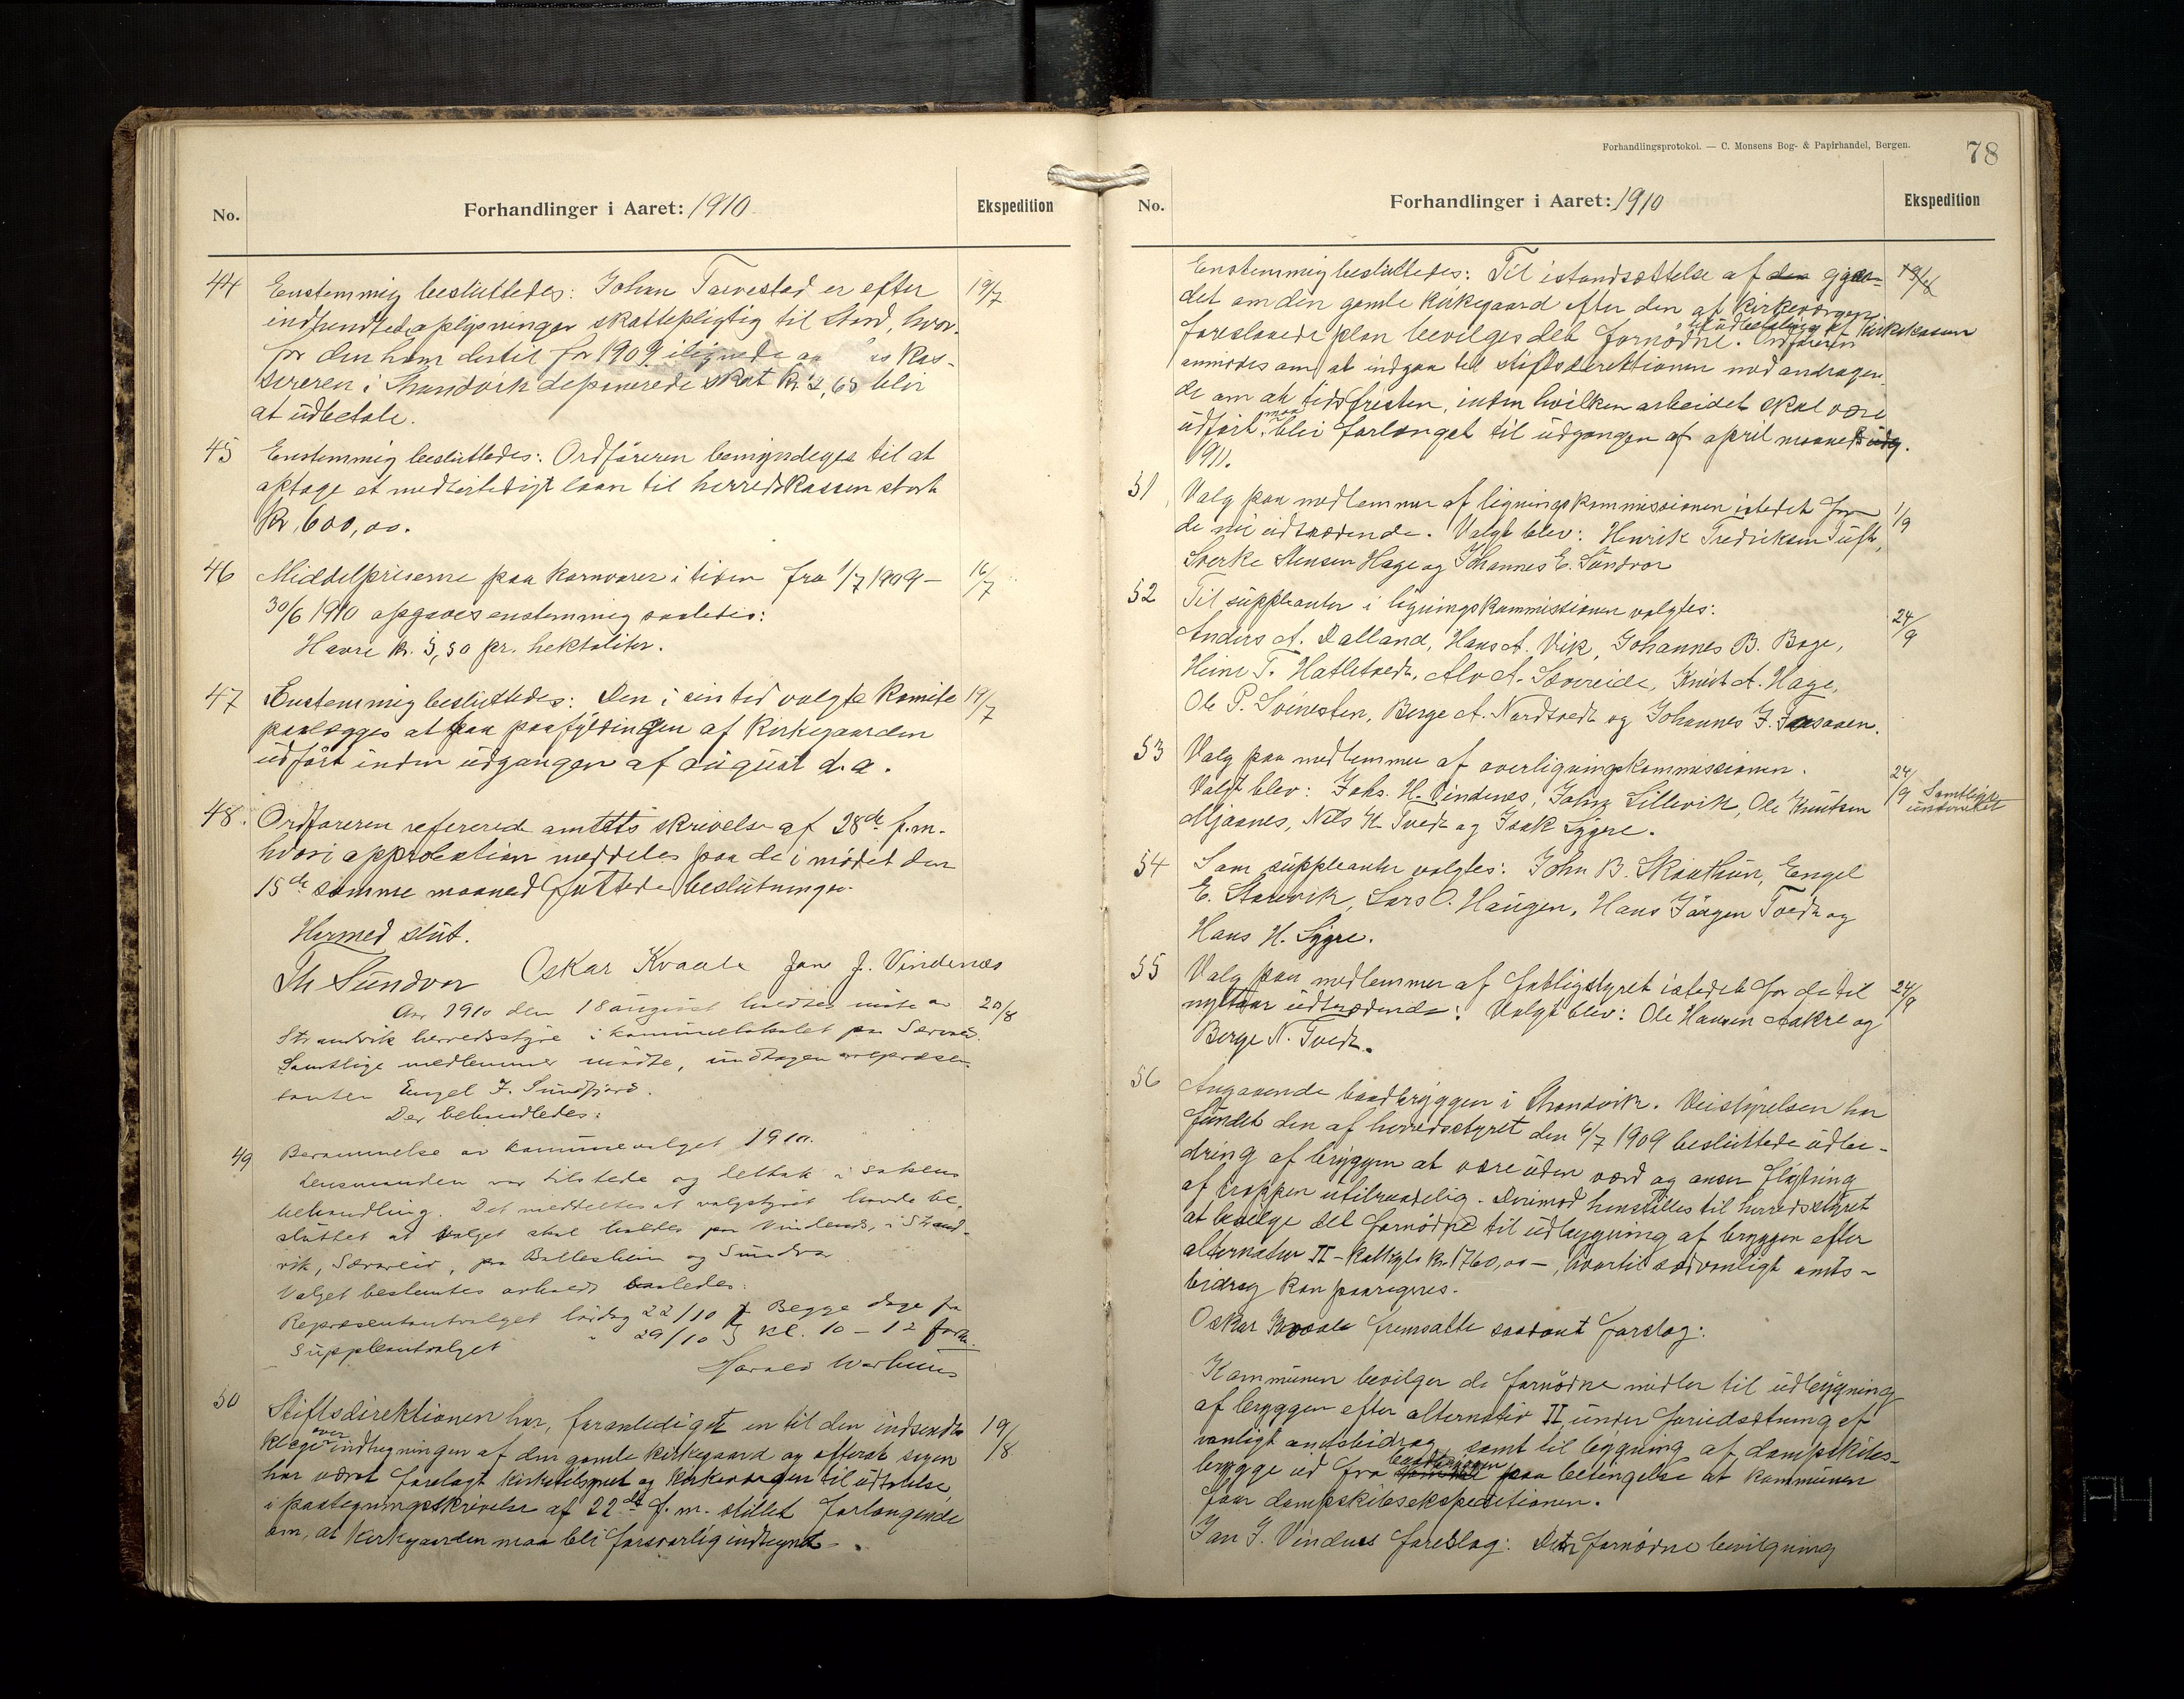 No.
Forhandlinger i Aaret: 1910
Ekspedition
44 Enstemmig besluttedes: Johan Tævestad er efter 19/7
indhendtede oplysninger skattepligtig til Stord, hvor-
for den ham dertil for 1909 ilignede og hos kas-
sereren i Strandvik deponerede skat kr. 2,65 blir
at udbetale.
45 Enstemmig besluttedes: Ordføreren bemyndiges til at
optage et midlertidigt laan til herredskassen stort
kr. 600,00.
46 Middelpriserne paa kornvarer i tiden fra 1/7 1909 – 16/7
30/6 1910 opgaves enstemmig saaledes:
Havre kr. 5,50 pr. hektoliter.
47 Enstemmig besluttedes: Den i sin tid valgte komite 19/7
paalægges at faa paafyldingen af kirkegaarden
udført inden udgangen af august d.a.
48. Ordføreren refererede amtets skrivelse af 28de f.m.
hvori approbation meddeles paa de i mødet den
15de samme maaned fattede beslutninger.
Hermed slut.
Th Sundvor Oskar Kvaale Jan J. Vindenes
Aar 1910 den 18 august holdtes møte av 20/8
Strandvik herredsstyre i kommunelokalet paa Særvoll.
Samtlige medlemmer mødte, undtagen repræsen-
tanten Engel J. Sundfjord.
Der behandledes:
49 Berammelse av kommunevalget 1910.
Lensmanden var tilstede og deltok i sakens
behandling. Det meddeltes at valgstyret havde be-
sluttet at valget skal holdes paa Vindenes, i Strand-
vik, Særvoll, paa Balleshein og Sundvor
Valget bestemtes avholdt saaledes:
Repræsentantvalget lördag 22/10 } Begge dage fra
Suppleantvalget " 29/10 } kl. 10 – 12 form.
Harald Warhuus
50 Stiftsdirektionen har, foranlediget en til den indsendte 19/8
klage over indhegningen af den gamle kirkegaard og efterat sagen
har været forelagt kirketilsynet og kirkeværgen til udtalelse
i paategningsskrivelse af 22de f.m. stillet forlangende
om, at kirkegaarden maa bli forsvarlig indhegnet.
Forhandlingsprotokol. — C. Monsens Bog- & Papirhandel, Bergen.
78
No.
Forhandlinger i Aaret: 1910
Ekspedition
Enstemmig besluttedes: Til istandsættelse af den gjær- 19/8
det om den gamle kirkegaard efter den af kirkeværgen
foreslaaede plan bevilges det fornødne til udbetaling af kirkekassen. Ordføreren
anmodes om at indgaa til stiftsdirektionen med andragen-
de om at tidsfristen, inden hvilken arbeidet skal være
udført, maa bli forlænget til udgangen af april maaned
1911.
51 Valg paa medlemmer af ligningskommissionen istedet for 1/9
de nu udtrædende. Valgt blev: Henrik Fredriksen Tuft,
Sverke Stensen Hage og Johannes E. Sundvor
52 Til suppleanter i ligningskommissionen valgtes: 24/9
Anders A. Dalland, Hans A. Vik, Johannes B. Boge,
Heine T. Hatletvedt, Alv A. Sævereide, Knut A. Hage,
Ole P. Svinesten, Berge A. Nordtvedt og Johannes J.
53 Valg paa medlemmer af overligningskommissionen. 24/9 Samtlige
Valgt blev: Johs. H. Vindenes, John Lillevik, Ole Knutsen underrettet
Mjaanes, Nils K. Tvedt og Isak Lygre.
54 Som suppleanter valgtes: John B. Skauthun, Engel
E. Stanvik, Lars O. Haugen, Hans Jørgen Tvedt og
Hans H. Lygre.
55 Valg paa medlemmer af fattigstyret istedet for de til 24/9
nyttaar udtrædende: Valgt blev: Ole Hansen Aakre og
Berge N. Tvedt.
56 Angaaende baadbryggen i Strandvik. Veistyrelsen har
fundet den af herredsstyret den 6/7 1909 besluttede udbe-
dring af bryggen at være uden værd og anser flytning
af trappen utilraadelig. Derimod henstilles til herredsstyret
at bevilge det fornødne til udbygning af bryggen efter
alternativ II – kostende kr. 1760,00 –, hvortil sedvanligt amts-
bidrag kan paaregnes.
Oskar Kvaale fremsatte saadant forslag:
Kommunen bevilger de fornødne midler til udbygning
af bryggen efter alternativ II under forudsætning af
vanligt amtsbidrag, samt til bygning af dampskibs-
brygge ud fra baadbryggen paa betingelse at kommunen
faar dampskibsekspeditionen.
Jan J. Vindenes foreslog: Den fornødne bevilgning